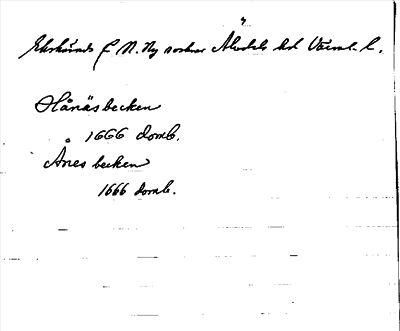 Ekshärads f. N. Ny socknar Älvdals hd Värml. l.
Hånäsbecken
1666 domb.
Ånes becken
1666 domb.